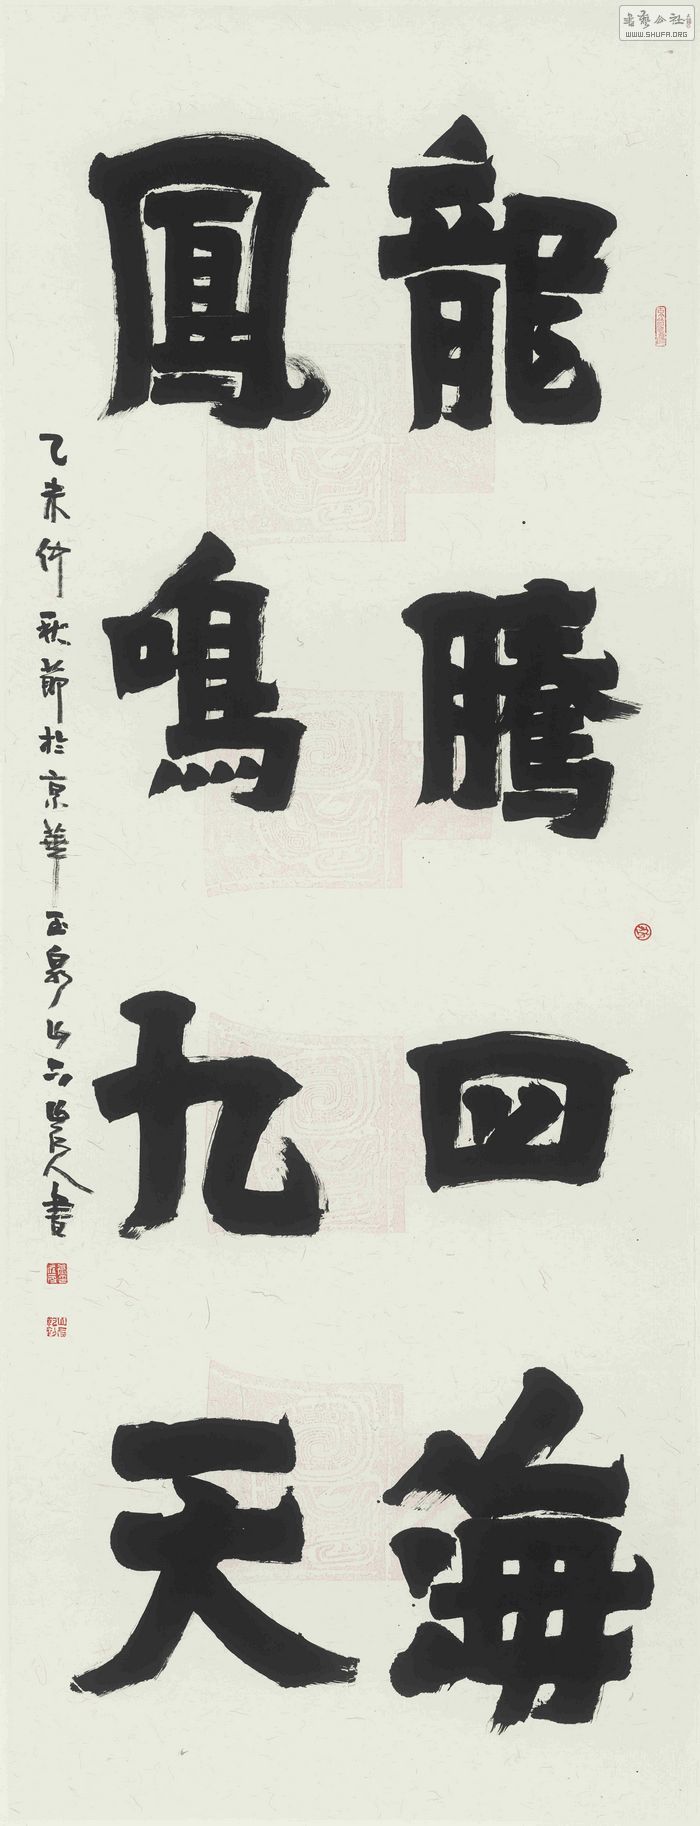 龍騰四海
鳳鳴九天
乙未仲秋節於京華玉泉山六山農人書
WWW.SHUFA.ORG